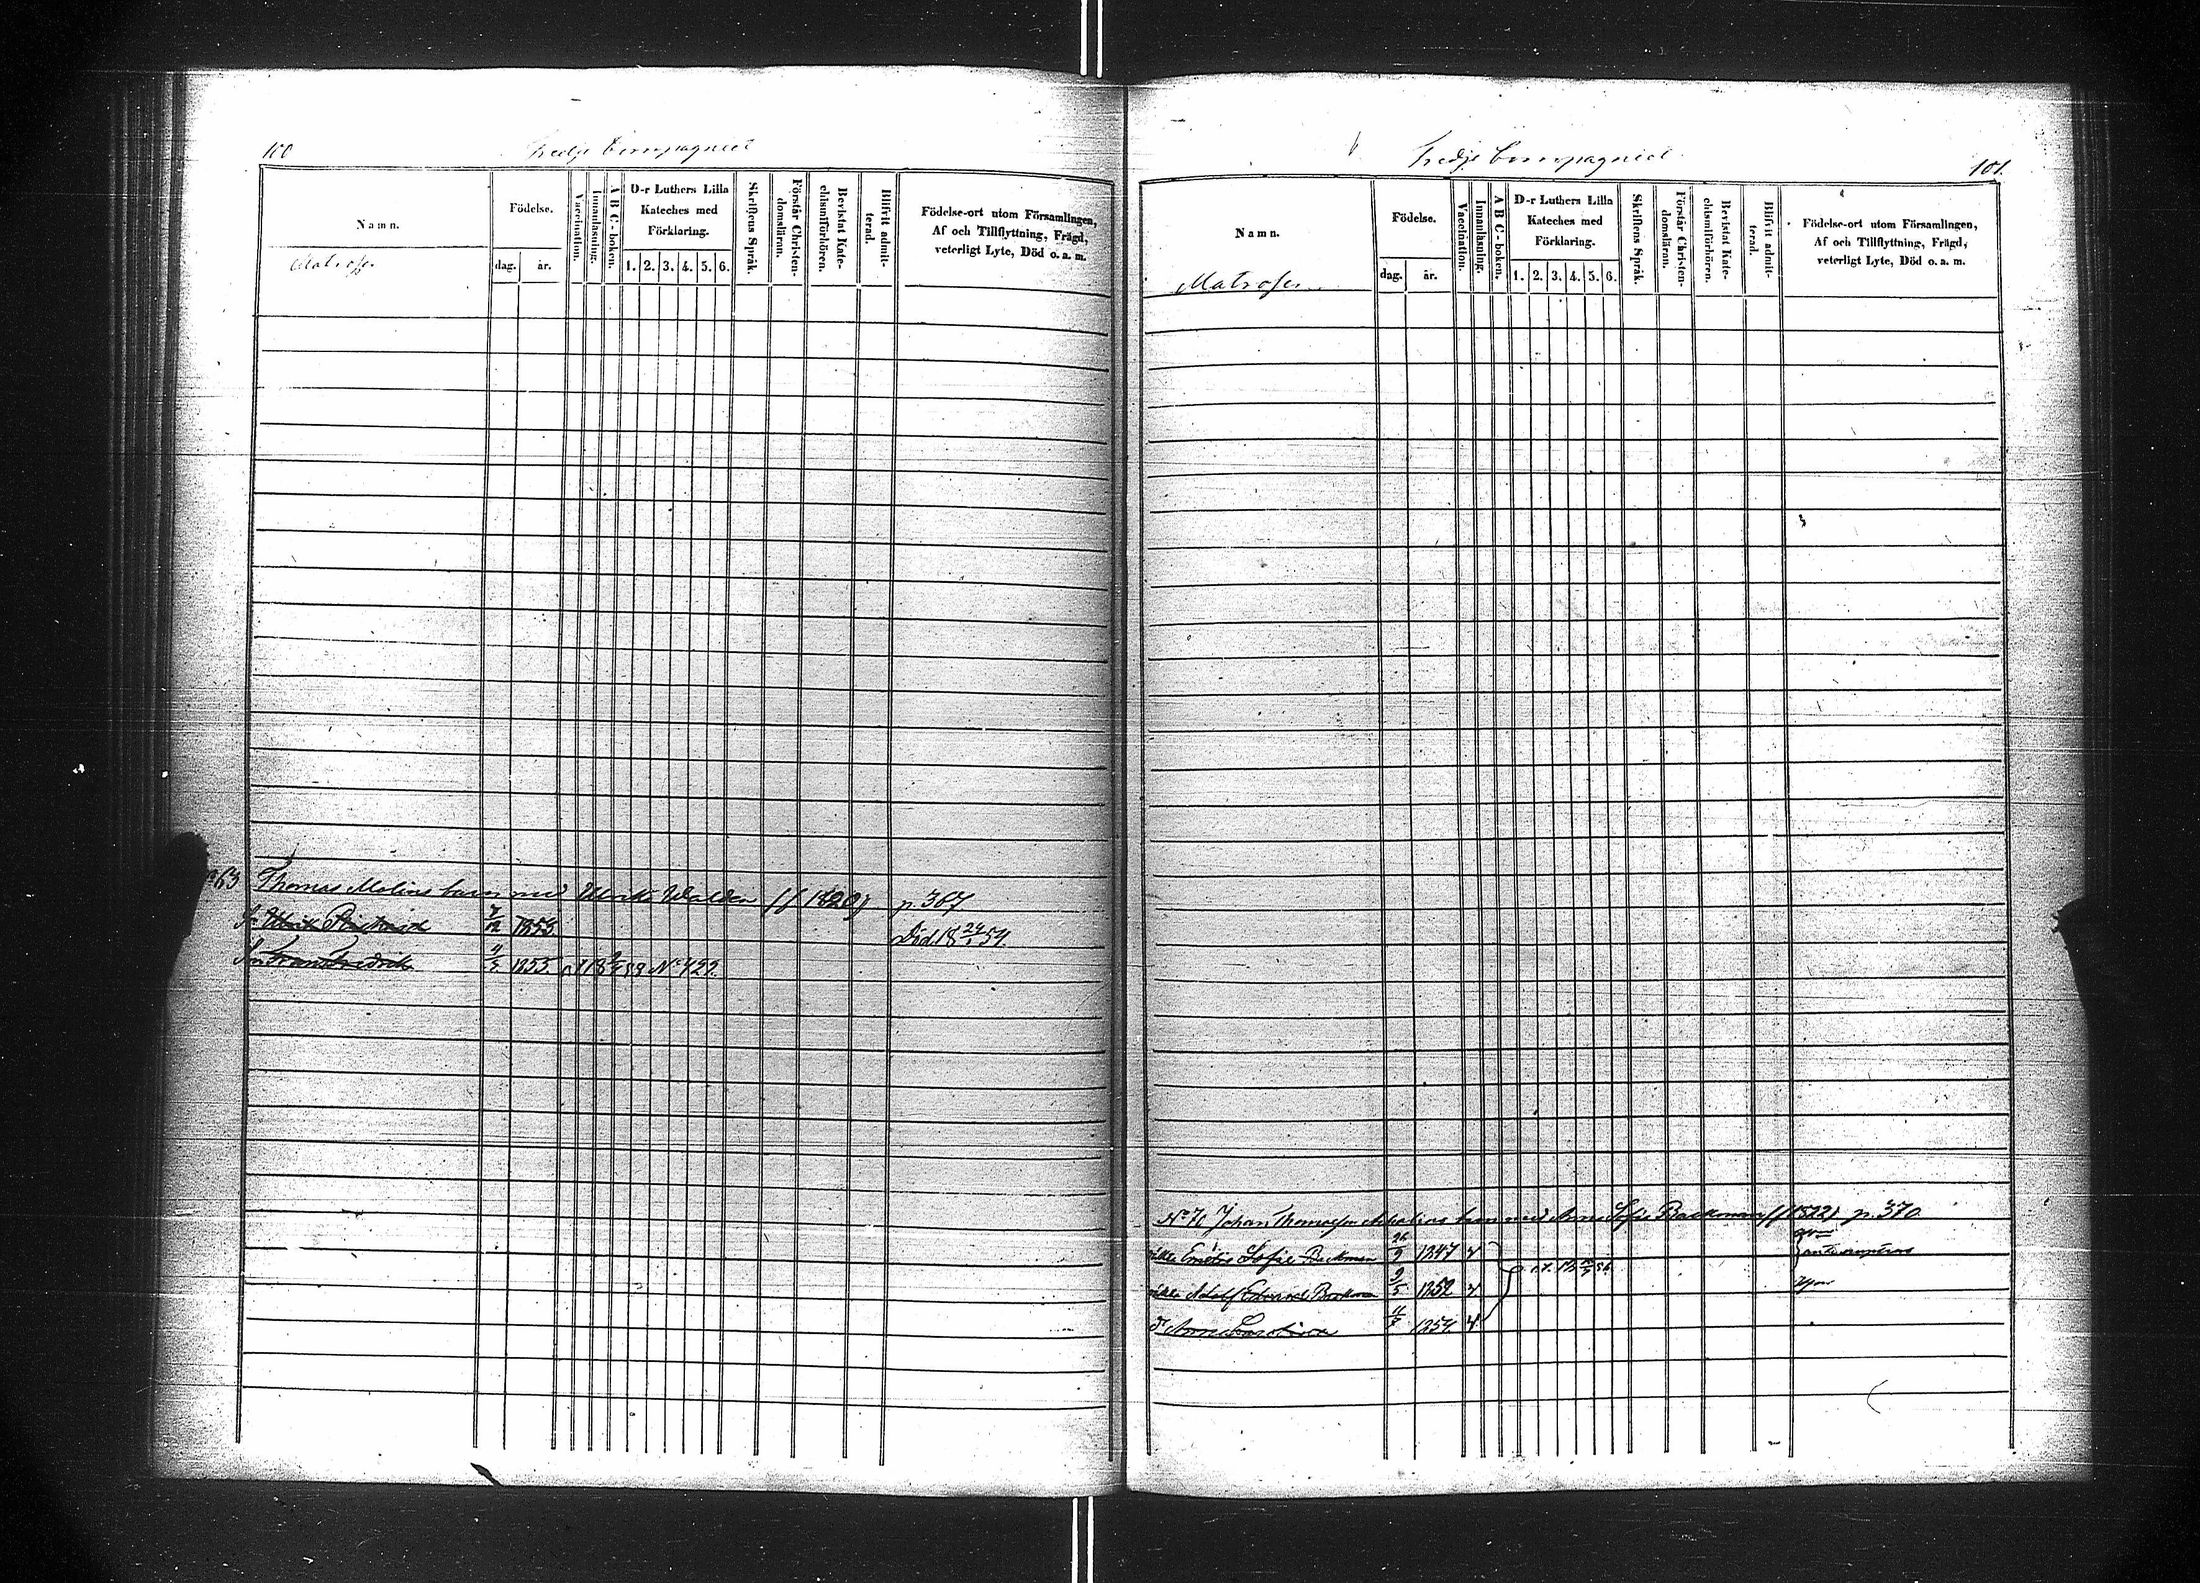 100
Tredje Compagniet
Namn.
Matroser
Födelse.
dag. år.
Vaccination.
Innanläsning.
A B C-boken.
D-r Luthers Lilla
Kateches med
Förklaring.
1. 2. 3. 4. 5. 6.
Skriftens Språk.
Förstår Christen-
domsläran.
Bevistat Kate-
chismiförhören.
Blifvit admit-
terad.
Födelse-ort utom Församlingen,
Af och Tillflyttning, Frägd,
veterligt Lyte, Död o. a. m.
63 Thomas Molins barn med Ulrika Walden (f 1820) p. 367
1853 Död 18 24/ 54.
Frans Fredrik 1855. No 422.
Tredje Compagniet
101.
Namn.
Matroser
Födelse.
dag. år.
Vaccination.
Innanläsning.
A B C-boken.
D-r Luthers Lilla
Kateches med
Förklaring.
1. 2. 3. 4. 5. 6.
Skriftens Språk.
Förstår Christen-
domsläran.
Bevistat Kate-
chismiförhören.
Blifvit admit-
terad.
Födelse-ort utom Församlingen,
Af och Tillflyttning, Frägd,
veterligt Lyte, Död o. a. m.
No 71 Johan Thomasson barn med Anna Sofia Backman (f 1822) p. 370
Sofie Backman 26/9 1847 v
Adolf Edvard Backman 9/5 1852 v
Anna 11/7 1854 v